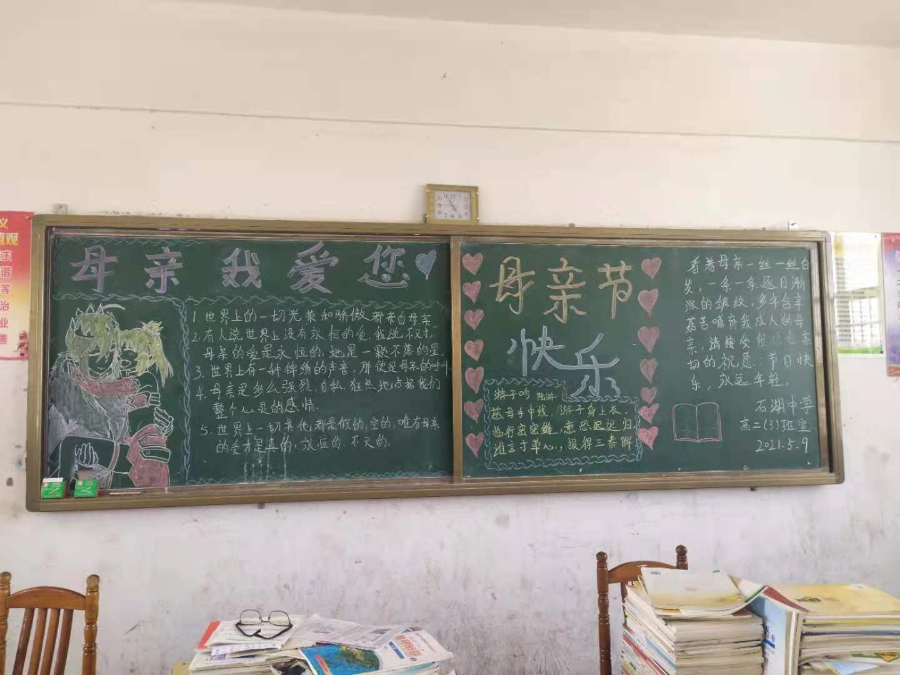 母亲我爱您
1.世界上的一切光荣和骄傲,都来自母亲
2.有人说世界上没有永恒的爱,我说不对,
母亲的爱是永恒的,她是一颗不落的星
3.世界上有一种伟大的声音,那便是母亲的呼唤
4.母亲是多么强烈、自私、狂热地占据我们
整个心灵的感情
5.世界上一切其他都是假的,空的,唯有母亲
的爱才是真的,永恒的 不灭的.
母亲节
快乐
游子吟
慈母手中线,游子身上衣.
临行密密缝,意恐迟迟归.
谁言寸草心,报得三春晖
看着母亲一丝一丝白
发,一条一条逐日渐
深的皱纹,多年含辛
茹苦哺育我成人的母
亲,请接受
切的祝愿:节日快
乐,永远年轻.
石湖中学
高二(3)班宣
2021.5.9
义
值观
主
谐
等
治
业
善